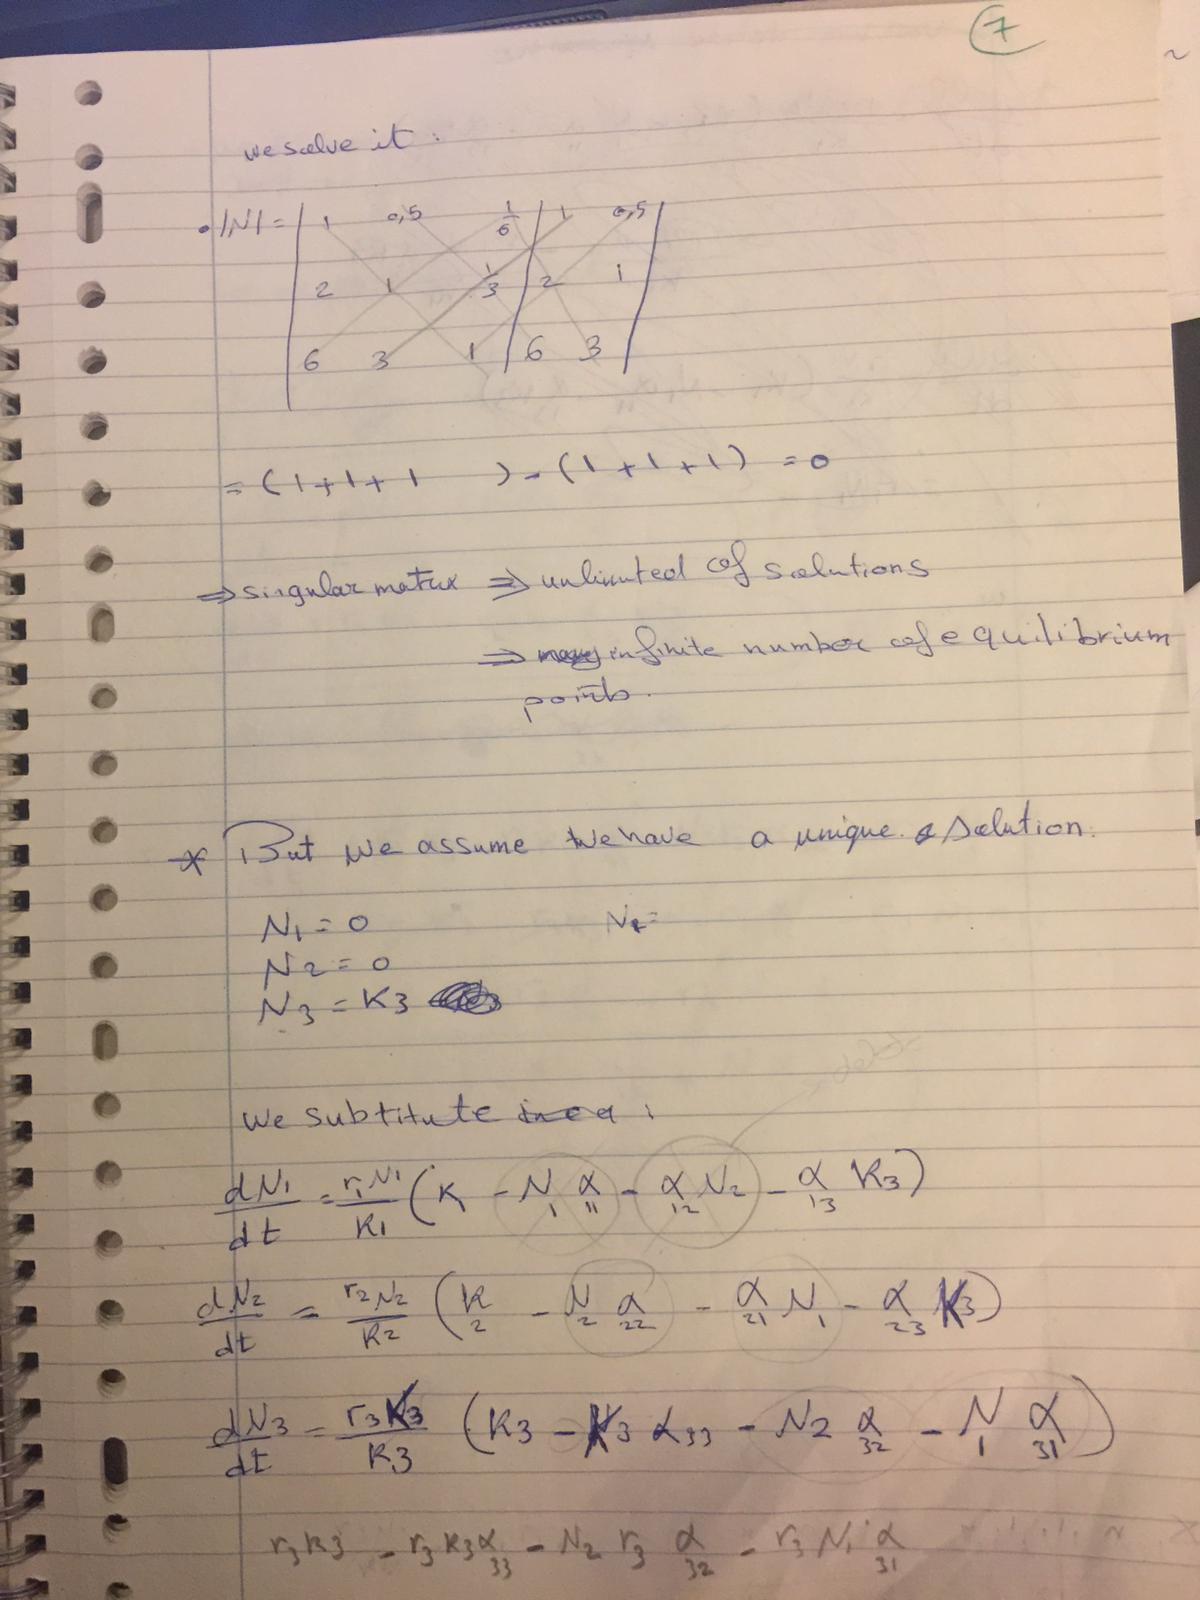 7
we solve it :
• |N| = | 1 0,5 1/6 | 1 0,5 |
2 1 1/3 2 1
6 3 1 6 3
= (1+1+1 ) - (1+1+1) = 0
⇒ singular matrix ⇒ unlimited of solutions
⇒ infinite number of equilibrium
points.
* But we assume we have a unique solution.
N1 = 0 N2=
N2 = 0
N3 = K3
we substitute :
dN1/dt = r1N1/K1 (K - N1 α11 - α12 N2 - α13 K3)
dN2/dt = r2N2/K2 (K2 - N2 α22 - α21 N1 - α23 K3)
dN3/dt = r3K3/K3 (K3 - K3 α33 - N2 α32 - N1 α31)
r3K3 - r3K3α33 - N2 r3 α32 - r3 N1 α31